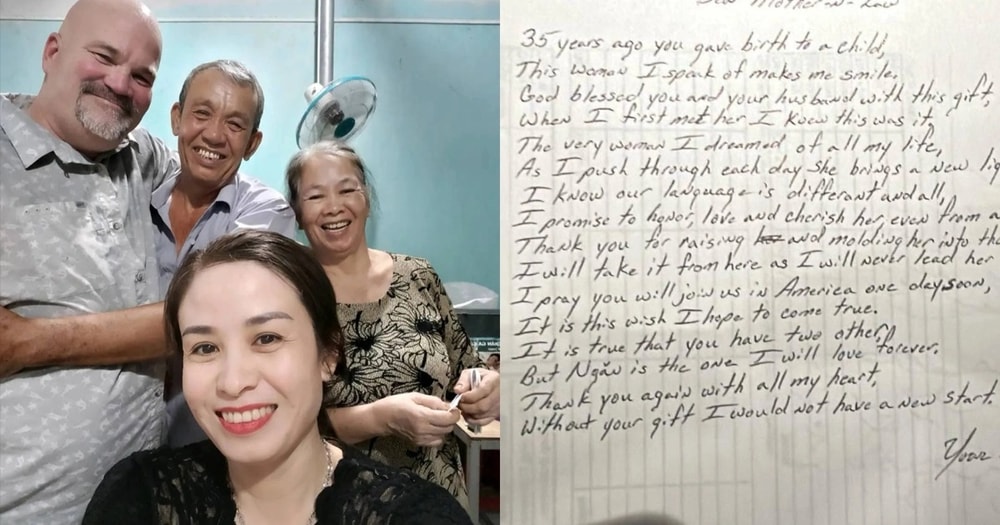 Dear Mother-n-Law
35 years ago you gave birth to a child,
This woman I speak of makes me smile.
God blessed you and your husband with this gift,
When I first met her I knew this was it.
The very woman I dreamed of all my life,
As I push through each day she brings a new lig
I know our language is differant and all,
I promise to honor, love and cherish her, even from a
Thank you for raising her and molding her into th
I will take it from here as I will never lead her
I pray you will join us in America one day soon,
It is this wish I hope to come true.
It is true that you have two other,
But Ngăn is the one I will love forever.
Thank you again with all my heart,
Without your gift I would not have a new start.
Your